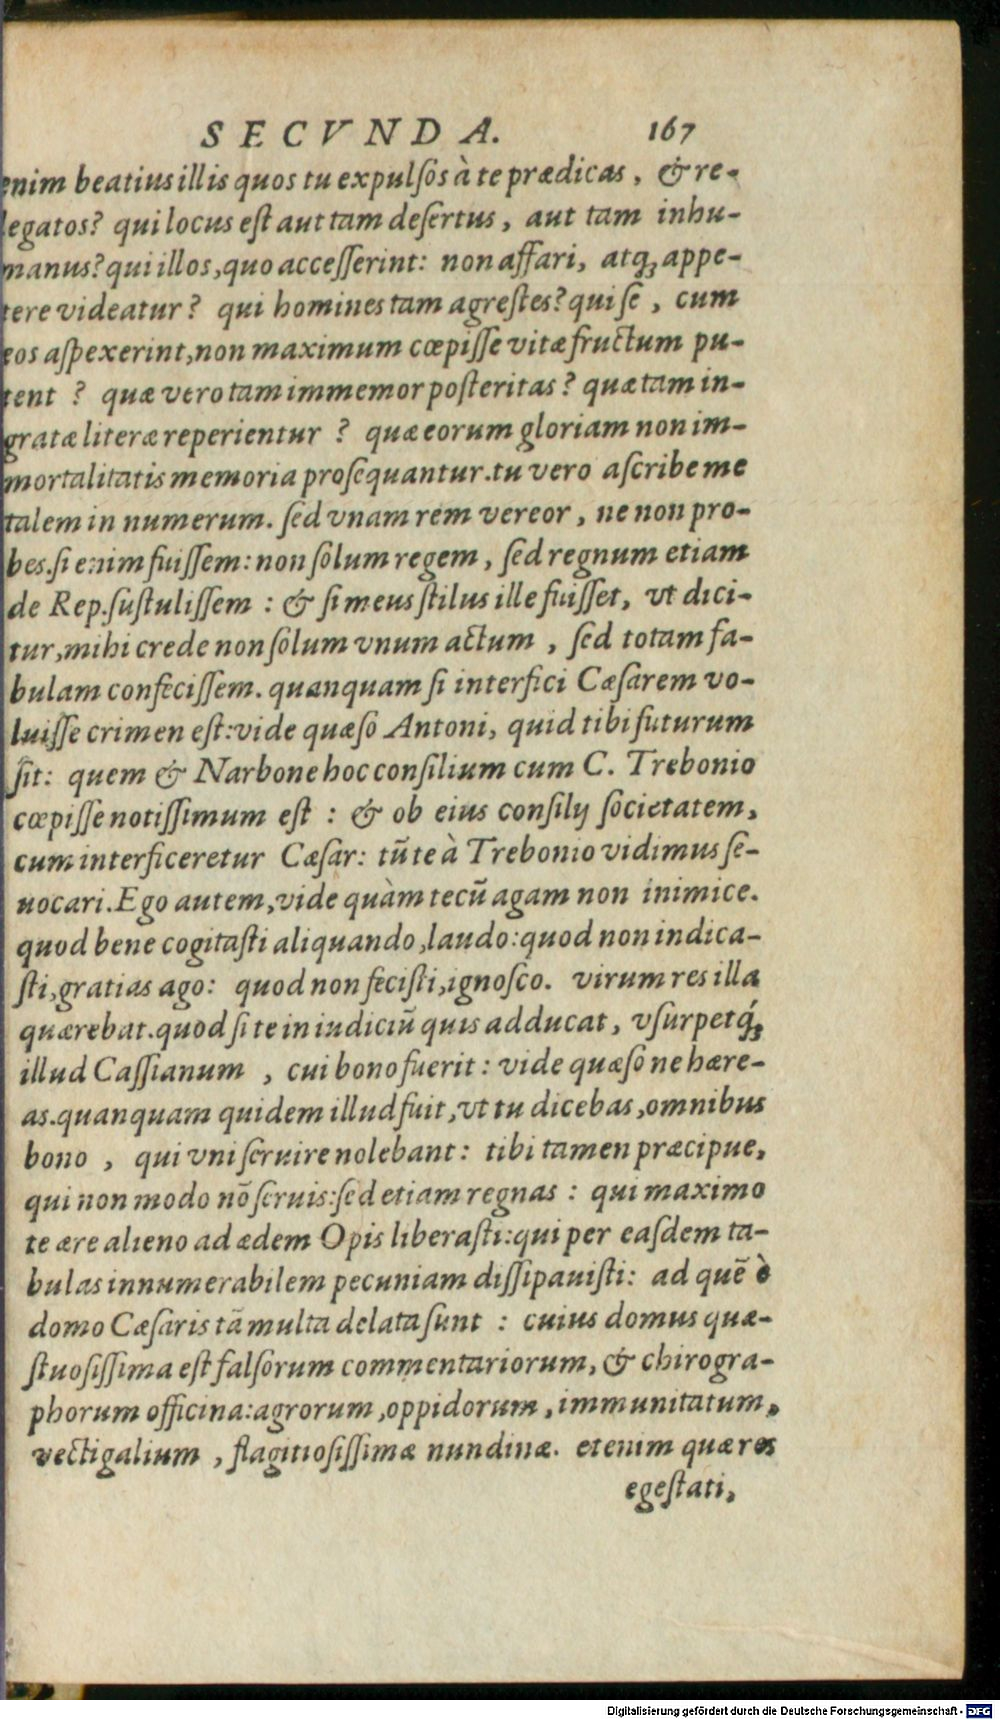 SECVNDA. 167
enim beatius illis quos tu expulſos à te prædicas, & re-
legatos? qui locus eſt aut tam deſertus, aut tam inhu-
manus? qui illos, quo acceſſerint: non affari, atq; appe-
tere videatur? qui homines tam agreſtes? qui ſe, cum
eos aſpexerint, non maximum cœpiſſe vitæ fructum pu-
tent? quæ vero tam immemor poſteritas? quæ tam in-
gratæ literæ reperientur? quæ eorum gloriam non im-
mortalitatis memoria proſequantur. tu vero aſcribe me
talem in numerum. ſed vnam rem vereor, ne non pro-
bes. ſi enim fuiſſem: non ſolum regem, ſed regnum etiam
de Rep. ſuſtuliſſem: & ſi meus ſtilus ille fuiſſet, vt dici-
tur, mihi crede non ſolum vnum actum, ſed totam fa-
bulam confeciſſem. quanquam ſi interfici Cæſarem vo-
luiſſe crimen eſt: vide quæſo Antoni, quid tibi futurum
ſit: quem & Narbone hoc conſilium cum C. Trebonio
cœpiſſe notiſſimum eſt: & ob eius conſilij ſocietatem,
cum interficeretur Cæſar: tū te à Trebonio vidimus ſe-
uocari. Ego autem, vide quàm tecū agam non inimice.
quod bene cogitaſti aliquando, laudo: quod non indica-
ſti, gratias ago: quod non feciſti, ignoſco. virum res illa
quærebat. quod ſi te in iudiciū quis adducat, vſurpetq́;
illud Caſſianum, cui bono fuerit: vide quæſo ne hære-
as. quanquam quidem illud fuit, vt tu dicebas, omnibus
bono, qui vni ſeruire nolebant: tibi tamen præcipue,
qui non modo nō ſeruis: ſed etiam regnas: qui maximo
te ære alieno ad ædem Opis liberaſti: qui per eaſdem ta-
bulas innumerabilem pecuniam diſſipauiſti: ad quē è
domo Cæſaris tā multa delata ſunt: cuius domus quæ-
ſtuoſiſſima eſt falſorum commentariorum, & chirogra-
phorum officina: agrorum, oppidorum, immunitatum,
vectigalium, flagitioſiſſimæ nundinæ. etenim quæ res
egeſtati,
Digitalisierung gefördert durch die Deutsche Forschungsgemeinschaft - DFG